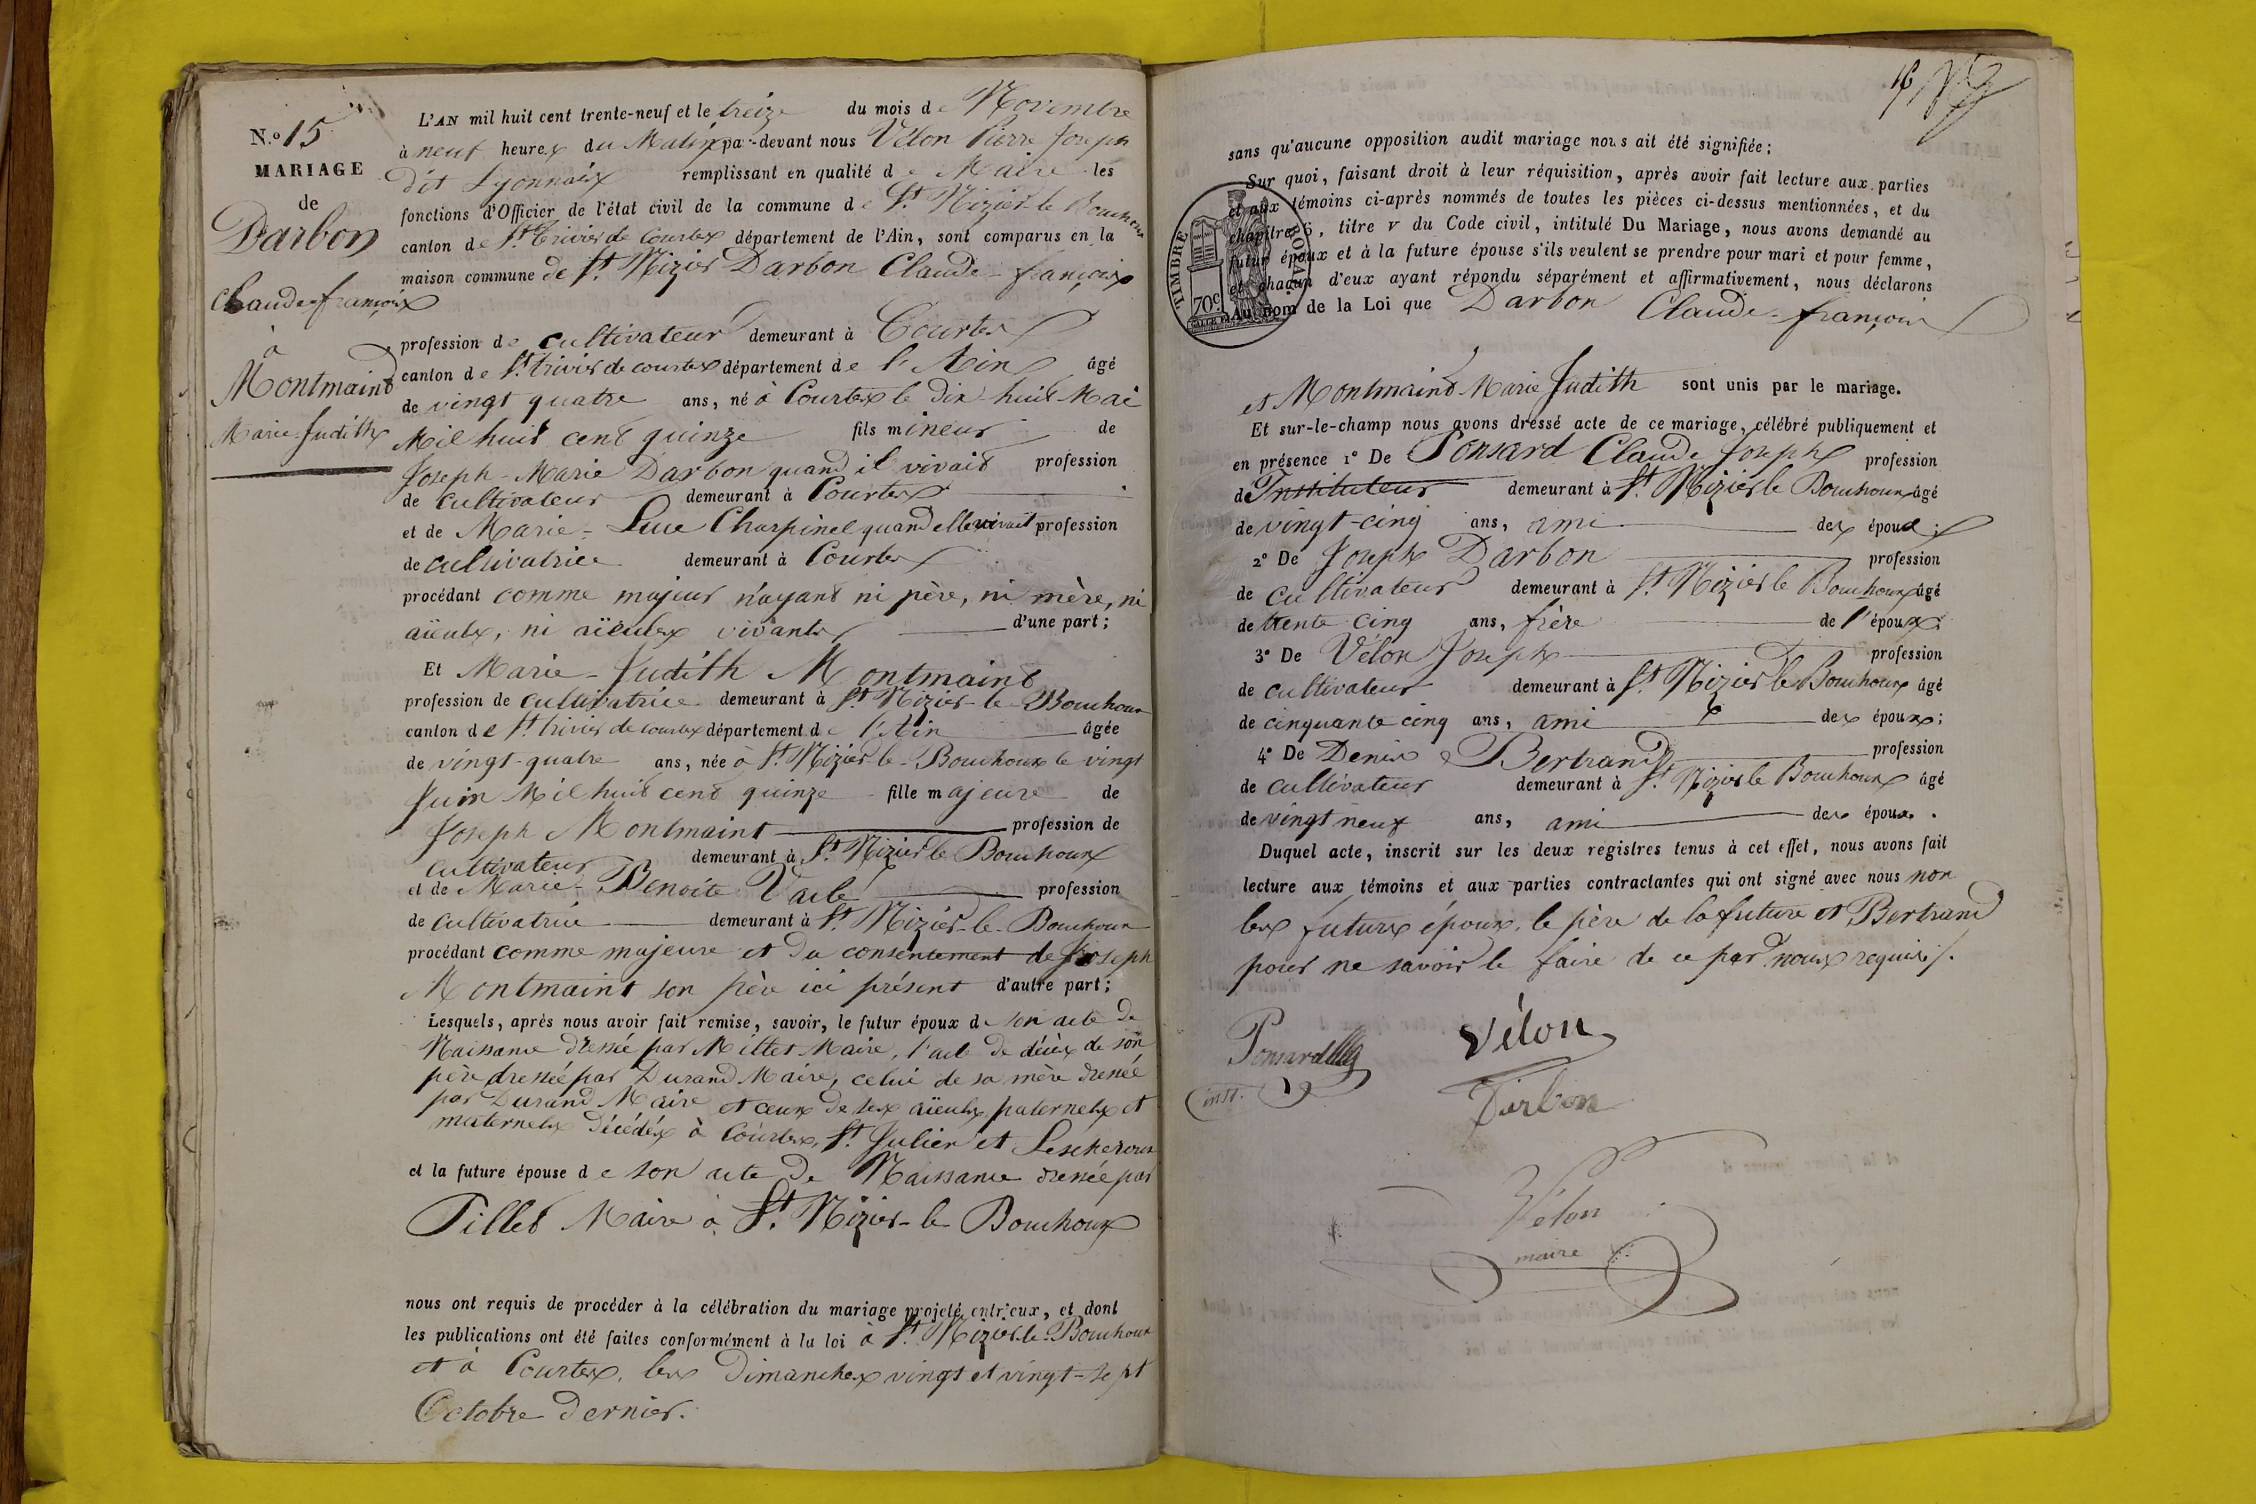 N.º 15
MARIAGE
de
Darbon
Claude françois
à
Montmaint
Marie Judith
L'AN mil huit cent trente-neuf et le treize du mois de Novembre
à neuf heures du Matin par-devant nous Vélon Pierre Joseph
dit Lyonnais remplissant en qualité de Maire les
fonctions d'Officier de l'état civil de la commune de St. Nizier le Bouchoux
canton de St. trivier de Courtes département de l'Ain, sont comparus en la
maison commune de St. Nizier Darbon Claude-françois
profession de cultivateur demeurant à Courtes
canton de St. trivier de courtes département de l'Ain âgé
de vingt quatre ans, né à Courtes le dix huit Mai
Mil huit cent quinze fils mineur de
Joseph-Marie Darbon quand il vivait profession
de cultivateur demeurant à Courtes
et de Marie-Luce Charpinel quand elle vivait profession
de cultivatrice demeurant à Courtes
procédant comme majeur n'ayant ni père, ni mère, ni
aïeuls, ni aïeules vivants d'une part;
Et Marie-Judith Montmaint
profession de cultivatrice demeurant à St. Nizier-le-Bouchoux
canton de St. trivier de courtes département de l'Ain âgée
de vingt-quatre ans, née à St. Nizier-le-Bouchoux le vingt
Juin Mil huit cent quinze fille majeure de
Joseph Montmaint profession de
cultivateur demeurant à St. Nizier le Bouchoux
et de Marie-Benoite profession
de cultivatrice demeurant à St. Nizier-le-Bouchoux
procédant comme majeure et du consentement de Joseph
Montmaint son père ici présent d'autre part;
Lesquels, après nous avoir fait remise, savoir, le futur époux de son acte de
Naissance dressé par Millet Maire, l'acte de décès de son
père dressé par Durand Maire, celui de sa mère dressé
par Durand Maire et ceux de ses aïeuls paternels et
maternels décédés à Courtes, St. Julien et Lescheroux
et la future épouse de son acte de Naissance dressée par
Pillet Maire à St. Nizier-le Bouchoux
nous ont requis de procéder à la célébration du mariage projeté entr'eux, et dont
les publications ont été faites conformément à la loi à St. Nizier-le-Bouchoux
et à Courtes, les Dimanches vingt et vingt-sept
Octobre dernier.
16
sans qu'aucune opposition audit mariage nous ait été signifiée;
Sur quoi, faisant droit à leur réquisition, après avoir fait lecture aux parties
et aux témoins ci-après nommés de toutes les pièces ci-dessus mentionnées, et du
chapitre 6, titre v du Code civil, intitulé Du Mariage, nous avons demandé au
futur époux et à la future épouse s'ils veulent se prendre pour mari et pour femme,
et chacun d'eux ayant répondu séparément et affirmativement, nous déclarons
Au nom de la Loi que Darbon Claude-françois
TIMBRE ROYAL
70c.
et Montmaint Marie Judith sont unis par le mariage.
Et sur-le-champ nous avons dressé acte de ce mariage, célébré publiquement et
en présence 1º De Ponsard Claude Joseph profession
de Instituteur demeurant à St. Nizier le Bouchoux âgé
de vingt-cinq ans, ami des époux;
2º De Joseph Darbon profession
de cultivateur demeurant à St. Nizier le Bouchoux âgé
de trente cinq ans, frère de l'époux;
3º De Vélon Joseph profession
de cultivateur demeurant à St. Nizier le Bouchoux âgé
de cinquante cinq ans, ami des époux;
4º De Denis Bertrand profession
de cultivateur demeurant à St. Nizier le Bouchoux âgé
de vingt neuf ans, ami des époux.
Duquel acte, inscrit sur les deux registres tenus à cet effet, nous avons fait
lecture aux témoins et aux parties contractantes qui ont signé avec nous non
les futurs époux, le père de la future et Bertrand
pour ne savoir le faire de ce par nous requis.
Ponsard Vélon
inst. Darbon
Vélon
maire